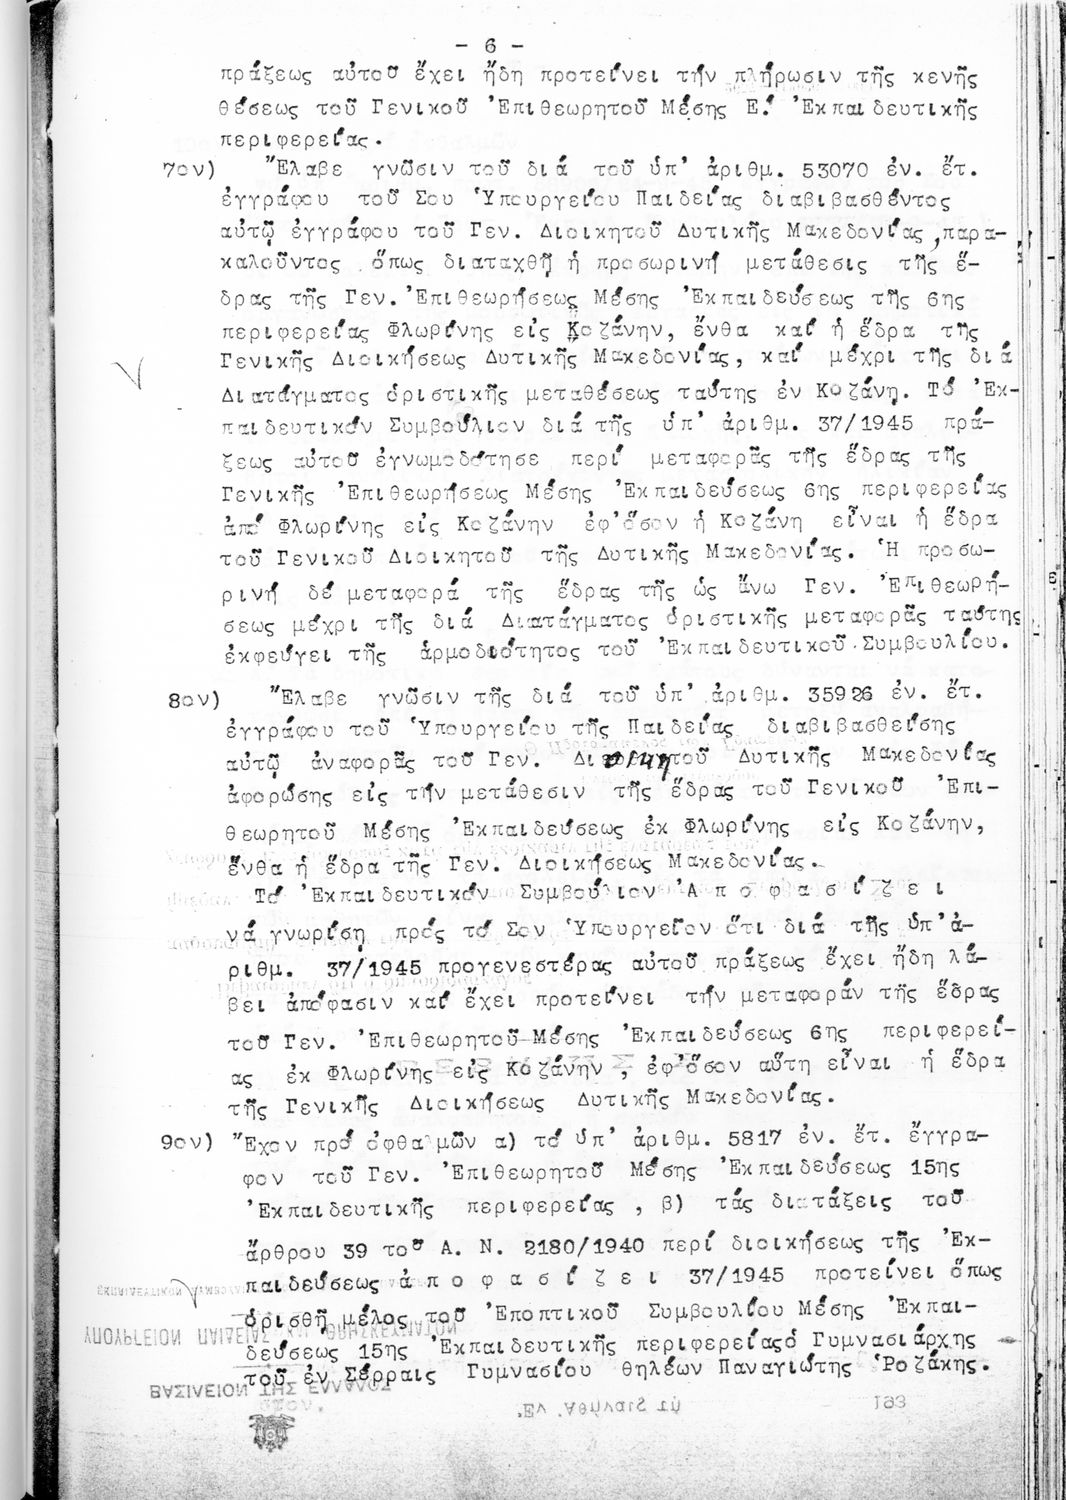 - 6 -
πράξεως αὐτοῦ ἔχει ἤδη προτείνει τήν πλήρωσιν τῆς κενῆς
θέσεως τοῦ Γενικοῦ Ἐπιθεωρητοῦ Μέσης Ε.' Ἐκπαιδευτικῆς
περιφερείας.
7ον) Ἔλαβε γνῶσιν τοῦ διά τοῦ ὑπ' ἀριθμ. 53070 ἐν. ἔτ.
ἐγγράφου τοῦ Σου Ὑπουργείου Παιδείας διαβιβασθέντος
αὐτῷ ἐγγράφου τοῦ Γεν. Διοικητοῦ Δυτικῆς Μακεδονίας ,παρα-
καλοῦντος ὅπως διαταχθῇ ἡ προσωρινή μετάθεσις τῆς ἕ-
δρας τῆς Γεν. Ἐπιθεωρήσεως Μέσης Ἐκπαιδεύσεως τῆς 6ης
περιφερείας Φλωρίνης εἰς Κοζάνην, ἔνθα καί ἡ ἕδρα τῆς
Γενικῆς Διοικήσεως Δυτικῆς Μακεδονίας, καί μέχρι τῆς διά
Διατάγματος ὁριστικῆς μεταθέσεως ταύτης ἐν Κοζάνῃ. Τό Ἐκ-
παιδευτικόν Συμβούλιον διά τῆς ὑπ' ἀριθμ. 37/1945 πρά-
ξεως αὐτοῦ ἐγνωμοδότησε περί μεταφορᾶς τῆς ἕδρας τῆς
Γενικῆς Ἐπιθεωρήσεως Μέσης Ἐκπαιδεύσεως 6ης περιφερείας
ἀπό Φλωρίνης εἰς Κοζάνην ἐφ'ὅσον ἡ Κοζάνη εἶναι ἡ ἕδρα
τοῦ Γενικοῦ Διοικητοῦ τῆς Δυτικῆς Μακεδονίας. Ἡ προσω-
ρινή δέ μεταφορά τῆς ἕδρας τῆς ὡς ἄνω Γεν. Ἐπιθεωρή-
σεως μέχρι τῆς διά Διατάγματος ὁριστικῆς μεταφορᾶς ταύτης
ἐκφεύγει τῆς ἁρμοδιότητος τοῦ Ἐκπαιδευτικοῦ Συμβουλίου.
8ον) Ἔλαβε γνῶσιν τῆς διά τοῦ ὑπ' ἀριθμ. 35926 ἐν. ἔτ.
ἐγγράφου τοῦ Ὑπουργείου τῆς Παιδείας διαβιβασθείσης
αὐτῷ ἀναφορᾶς τοῦ Γεν. Διοικητοῦ Δυτικῆς Μακεδονίας
ἀφορώσης εἰς τήν μετάθεσιν τῆς ἕδρας τοῦ Γενικοῦ Ἐπι-
θεωρητοῦ Μέσης Ἐκπαιδεύσεως ἐκ Φλωρίνης εἰς Κοζάνην,
ἔνθα ἡ ἕδρα τῆς Γεν. Διοικήσεως Μακεδονίας.
Τό Ἐκπαιδευτικόν Συμβούλιον Ἀ π ο φ α σ ί ζ ε ι
νά γνωρίσῃ πρός τό Σον Ὑπουργεῖον ὅτι διά τῆς ὑπ'ἀ-
ριθμ. 37/1945 προγενεστέρας αὐτοῦ πράξεως ἔχει ἤδη λά-
βει ἀπόφασιν καί ἔχει προτείνει τήν μεταφοράν τῆς ἕδρας
τοῦ Γεν. Ἐπιθεωρητοῦ Μέσης Ἐκπαιδεύσεως 6ης περιφερεί-
ας ἐκ Φλωρίνης εἰς Κοζάνην , ἐφ'ὅσον αὕτη εἶναι ἡ ἕδρα
τῆς Γενικῆς Διοικήσεως Δυτικῆς Μακεδονίας.
9ον) Ἔχον πρό ὀφθαλμῶν α) τό ὑπ' ἀριθμ. 5817 ἐν. ἔτ. ἔγγρα-
φον τοῦ Γεν. Ἐπιθεωρητοῦ Μέσης Ἐκπαιδεύσεως 15ης
Ἐκπαιδευτικῆς περιφερείας , β) τάς διατάξεις τοῦ
ἄρθρου 39 τοῦ Α. Ν. 2180/1940 περί διοικήσεως τῆς Ἐκ-
παιδεύσεως ἀ π ο φ α σ ί ζ ε ι 37/1945 προτείνει ὅπως
ὁρισθῇ μέλος τοῦ Ἐποπτικοῦ Συμβουλίου Μέσης Ἐκπαι-
δεύσεως 15ης Ἐκπαιδευτικῆς περιφερείαςὁ Γυμνασιάρχης
τοῦ ἐν Σέρραις Γυμνασίου θηλέων Παναγιώτης Ῥοζάκης.
ΥΠΟΥΡΓΕΙΟΝ ΠΑΙΔΕΙΑΣ ΚΑΙ ΘΡΗΣΚΕΥΜΑΤΩΝ
ΒΑΣΙΛΕΙΟΝ ΤΗΣ ΕΛΛΑΔΟΣ
Ἐν Ἀθήναις τῇ 193